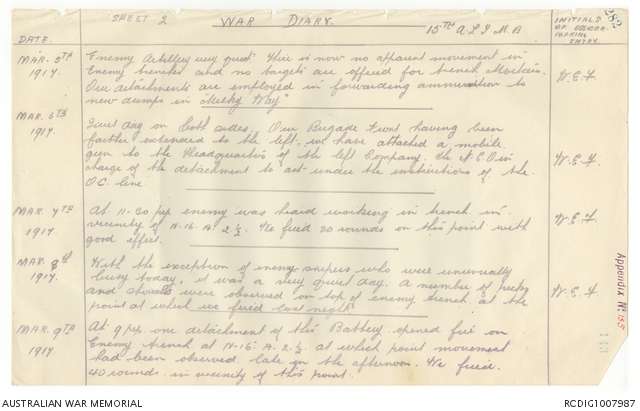 SHEET 2 WAR DIARY. 15TH A.L.T.M.B
282
DATE.
INITIALS OF OFFICER MAKING ENTRY.
MAR. 5TH 1917. Enemy Artillery very quiet. There is now no apparent movement in
Enemy trenches and no targets are offered for trench Mortars.
Our detachments are employed in forwarding ammunition to
new dumps in "Sticky Way" W.E.F.
MAR. 6TH 1917. Quiet day on both sides. Our Brigade Front having been
further extended to the left, we have attached a mobile
gun to the Headquarters of the left Company, the N.C.O in
charge of the detachment to act under the instructions of the
O.C. line. W.E.F.
MAR. 7TH 1917. At 11-30 pm enemy was heard working in trench in
vicinity of N.16.A.2.½. We fired 20 rounds on this point with
good effect. W.E.F.
MAR. 8th 1917. With the exception of enemy snipers who were unusually
busy today, it was a very quiet day. A number of picks
and shovels were observed on top of enemy trench at the
point at which we fired last night. W.E.F.
MAR. 9TH 1917 At 9 pm one detachment of this Battery opened fire on
Enemy trench at N.16.A.2.½ at which point movement
had been observed late in the afternoon. We fired
40 rounds in vicinity of this point.
Appendix No 155
AUSTRALIAN WAR MEMORIAL RCDIG1007987